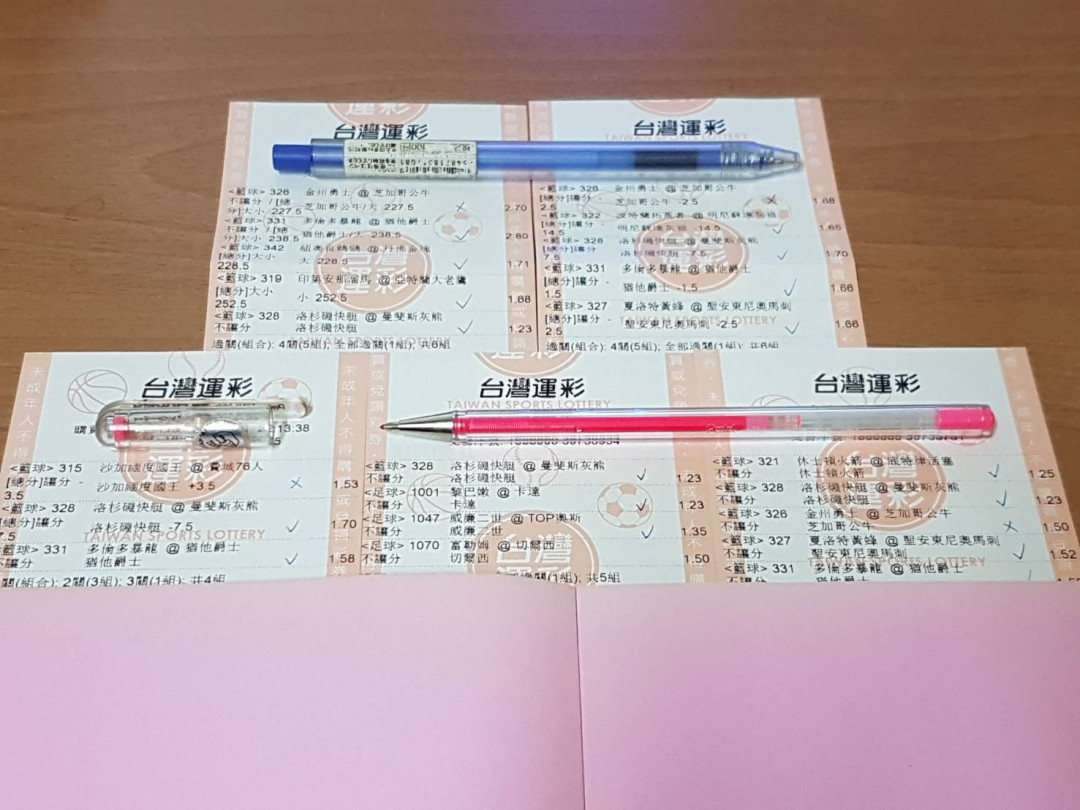 台灣運彩
100円
<籃球> 328 金州勇士 @ 芝加哥公牛
不讓分 / [總
分]大小 227.5 芝加哥公牛/大 227.5 2.70
<籃球> 331 多倫多暴龍 @ 猶他爵士
不讓分 / [總
分]大小 238.5 猶他爵士/大 238.5 2.60
<籃球> 342 紐奧良鵜鶘 @ 丹佛金塊
[總分]大小 大 228.5 1.71
228.5
<籃球> 319 印第安那溜馬 @ 亞特蘭大老鷹
[總分]大小 小 252.5 1.68
252.5
<籃球> 328 洛杉磯快艇 @ 曼斐斯灰熊
不讓分 洛杉磯快艇 1.23
過關(組合): 4關(5組); 全部過關(1組); 共6組
台灣運彩
TAIWAN SPORTS LOTTERY
<籃球> 326 金州勇士 @ 芝加哥公牛
[總分]讓分 - 芝加哥公牛 -2.5 1.68
2.5
<籃球> 322 波特蘭拓荒者 @ 明尼蘇達灰狼
[總分]讓分 - 明尼蘇達灰狼 -14.5 1.65
14.5
<籃球> 328 洛杉磯快艇 @ 曼斐斯灰熊
[總分]讓分 洛杉磯快艇 -7.5 1.70
7.5
<籃球> 331 多倫多暴龍 @ 猶他爵士
[總分]讓分 - 猶他爵士 -1.5 1.66
1.5
<籃球> 327 夏洛特黃蜂 @ 聖安東尼奧馬刺
[總分]讓分 - 聖安東尼奧馬刺 -2.5 1.66
2.5
過關(組合): 4關(5組); 全部過關(1組); 共6組
台灣運彩
13:38
<籃球> 315 沙加緬度國王 @ 費城76人
[總分]讓分 - 沙加緬度國王 +3.5 1.53
3.5
<籃球> 328 洛杉磯快艇 @ 曼斐斯灰熊
[總分]讓分 洛杉磯快艇 -7.5 1.70
7.5
TAIWAN SPORTS LOTTERY
<籃球> 331 多倫多暴龍 @ 猶他爵士
不讓分 猶他爵士 1.58
過關(組合): 2關(3組); 3關(1組); 共4組
未成年人不得購
台灣運彩
TAIWAN SPORTS LOTTERY
<籃球> 328 洛杉磯快艇 @ 曼斐斯灰熊
不讓分 洛杉磯快艇 1.23
<足球> 1001 黎巴嫩 @ 卡達
不讓分 卡達 1.23
<足球> 1047 威廉二世 @ TOP奧斯
不讓分 威廉二世 1.35
<足球> 1070 富勒姆 @ 切爾西
不讓分 切爾西 1.50
過關(1組); 共5組
台灣運彩
<籃球> 321 休士頓火箭 @ 底特律活塞
不讓分 休士頓火箭 1.25
<籃球> 328 洛杉磯快艇 @ 曼斐斯灰熊
不讓分 洛杉磯快艇 1.23
<籃球> 326 金州勇士 @ 芝加哥公牛
不讓分 芝加哥公牛 1.50
<籃球> 327 夏洛特黃蜂 @ 聖安東尼奧馬刺
不讓分 聖安東尼奧馬刺 1.52
<籃球> 331 多倫多暴龍 @ 猶他爵士
不讓分 猶他爵士